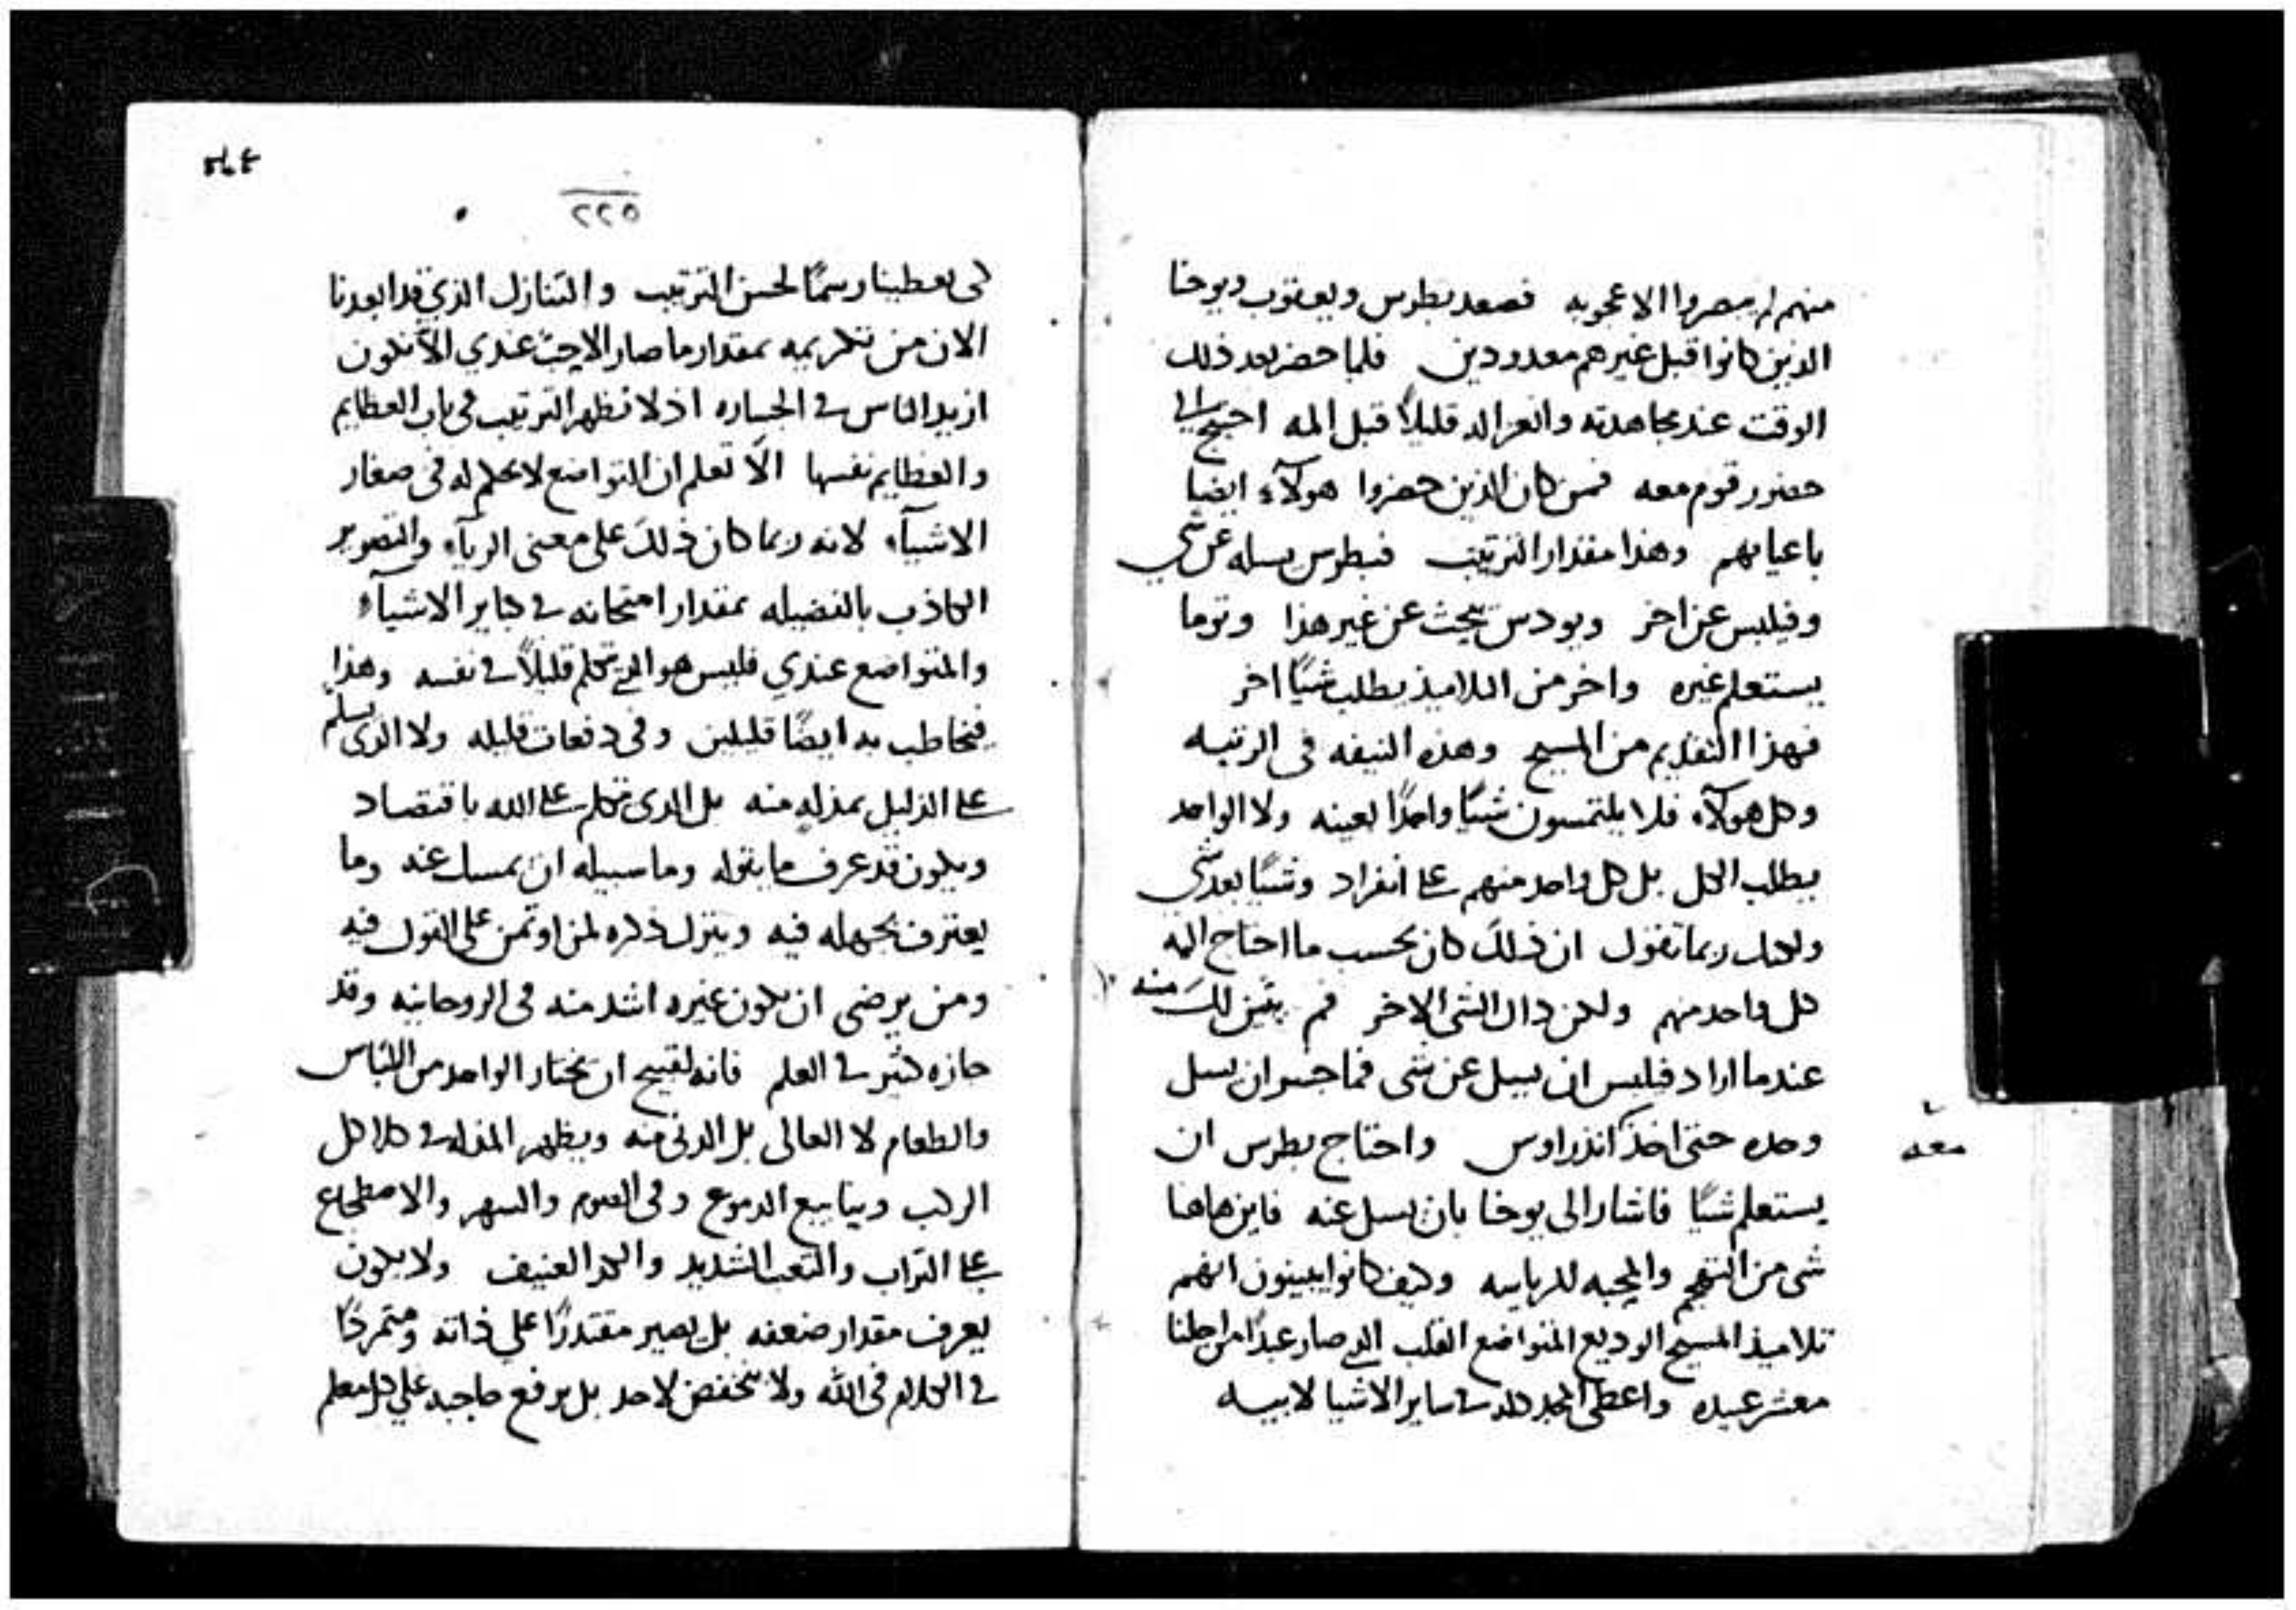 منهم لم يبصروا الاعجوبه فصعد بطرس ويعقوب ويوحنا
الذين كانوا قبل غيرهم معدودين فلما حضر بعد ذلك
الوقت عند مجاهدته وانعزاله قليلاً قبل المه احتيج الى
حضور قوم معه فمن كان الذين حضروا هولآء ايضا
باعيانهم وهذا مقدار الترتيب فبطرس يسله عن شي
وفيلبس عن اخر ويودس يبحث عن غير هذا وتوما
يستعلم غيره واخر من التلاميذ يطلب شيًا اخر
فهذا التقديم من المسيح وهذه النيفه فى الرتبه
وكل هولآء فلا يلتمسون شيًا واحدًا بعينه ولا الواحد
يطلب الكل بل كل واحد منهم على انفراد وشيًا بعد شي
ولعلك ربما تقول ان ذلك كان بحسب ما احتاج اليه
كل واحد منهم ولكن ذاك الشي الاخر فم يتبين لك منه
عندما اراد فيلبس ان يسيل عن شى فما جسر ان يسل
وحده حتى اخذ اندراوس واحتاج بطرس ان
معه
يستعلم شيًا فاشار الى يوحنا بان يسل عنه فاين هاهنا
شى من التهجم والمحبه للرياسه وكيف كانوا يبينون انهم
تلاميذ المسيح الوديع المتواضع القلب الذي صار عبدًا من اجلنا
معشر عبيده واعطى المجد كله في ساير الاشيا لابيه
٢٢٥
لكى يعطينا رسمًا لحسن الترتيب والتنازل الذي قد ابعدنا
الان من تكريمه بمقدار ما صار الاحب عندي الا نكون
ازيد الناس في الجساره اذ لا نظهر الترتيب في باب العظايم
والعظايم نفسها الّا تعلم ان التواضع لا يحكم له فى صغار
الاشيآء لانه ربما كان ذلك على معنى الريآء والتصوير
الكاذب بالفضيله بمقدار امتحانه في كباير الاشيآء
والمتواضع عندي فليس هو الذي تكلم قليلاً في نفسه وهذا
فيخاطب به ايضًا قليلين وفى دفعات قليله ولا الذى يسلم
على الذليل بمذله منه بل الذى تكلم على الله باقتصاد
ويكون قد عرف ما يقوله وما سبيله ان يمسك عنه وما
يعترف بجهله فيه وينزل ذكره لمن اوتمن على القول فيه
ومن يرضى ان يكون غيره اشد منه فى الروحانيه وقد
حازه كثير في العلم فانه لقبيح ان يختار الواحد من اللباس
والطعام لا العالى بل الدنى منه ويظهر المذله في كلا كل
الركب وينابيع الدموع وفى الصوم والسهر والاضطجاع
على التراب والتعب الشديد والكد العنيف ولا يكون
يعرف مقدار ضعفه بل يصير مقتدرًا على ذاته ومتمردًا
في الكلام فى الله ولا ينخفض لاحد بل يرفع حاجبه على كل معلم